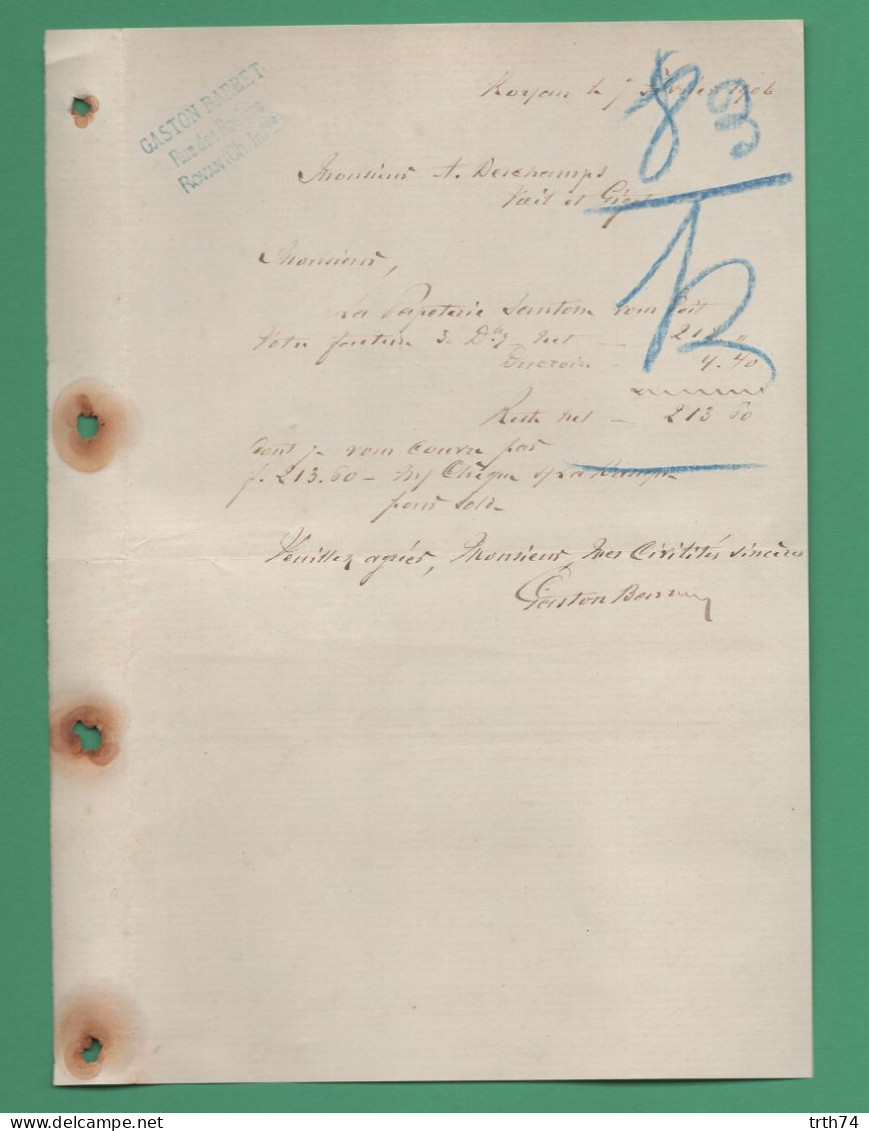 GASTON BARBET
Rue des
ROYAN (Ch. Infre)
Royan le 7 février 1906
Monsieur A. Deschamps
Vail et
Monsieur,
La Papeterie Santone vous doit
Votre facture 3. net — 218 "
4.40
Reste net — 213 60
dont je vous couvre par
f. 213.60 — m/ Chèque s/ La
pour solde
Veuillez agréer, Monsieur, mes Civilités sincères
Gaston
8
B
Delcampe.net
trth74